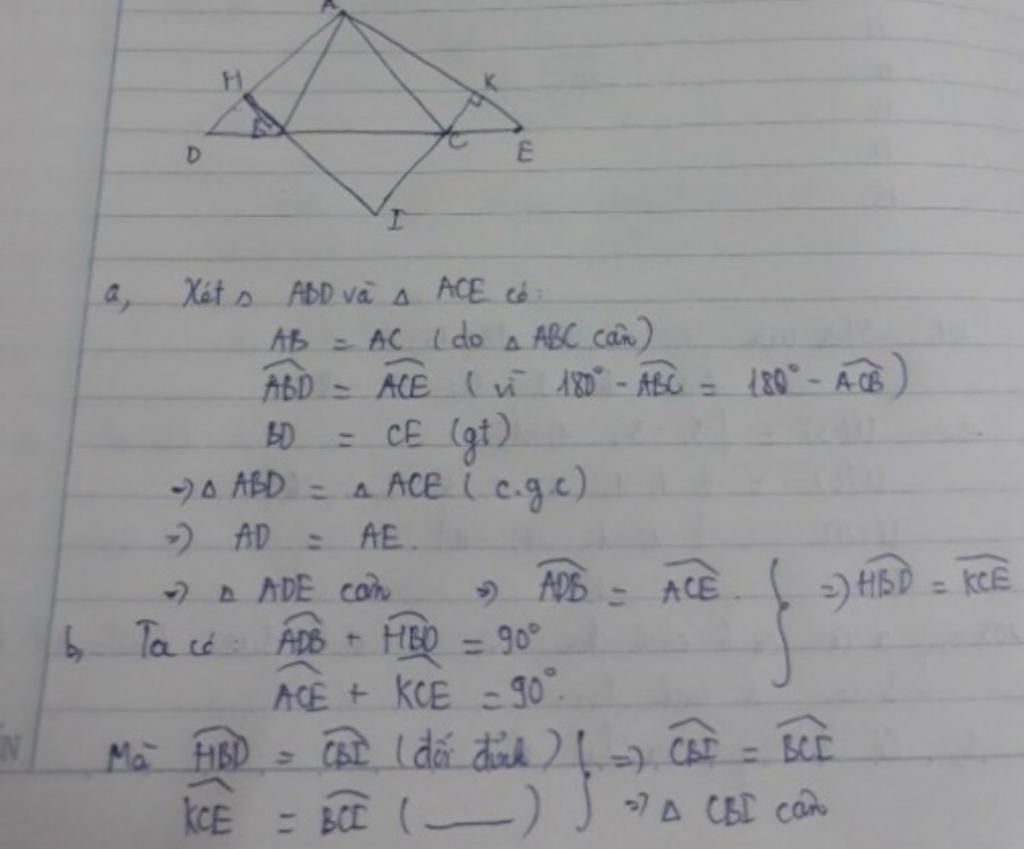 A
H
K
B
C
D
E
I
a, Xét △ ABD và △ ACE có:
AB = AC (do △ ABC cân)
\widehat{ABD} = \widehat{ACE} (vì 180° - \widehat{ABC} = 180° - \widehat{ACB})
BD = CE (gt)
=> △ ABD = △ ACE (c.g.c)
=> AD = AE.
=> △ ADE cân => \widehat{ADB} = \widehat{ACE}. } => \widehat{HBD} = \widehat{KCE}
b, Ta có: \widehat{ADB} + \widehat{HBD} = 90°
\widehat{ACE} + \widehat{KCE} = 90°.
Mà \widehat{HBD} = \widehat{CBI} (đối đỉnh) } => \widehat{CBI} = \widehat{BCI}
\widehat{KCE} = \widehat{BCI} (___) } => △ CBI cân